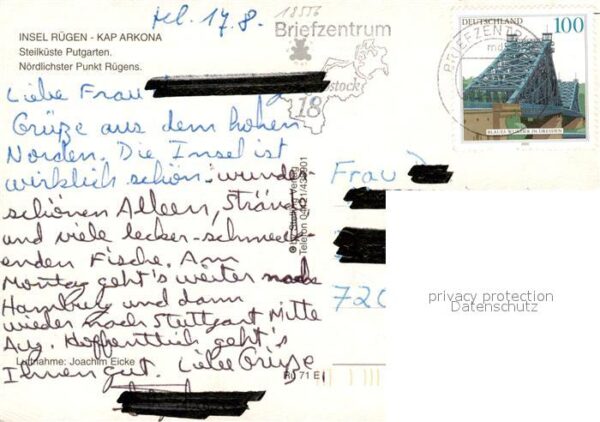 tel. 17.8.
18556
Briefzentrum
18
DEUTSCHLAND 100
BRIEFZENTRUM
BLAUES WUNDER IN DRESDEN
INSEL RÜGEN - KAP ARKONA
Steilküste Putgarten.
Nördlichster Punkt Rügens.
Liebe Frau
Grüße aus dem hohen
Norden. Die Insel ist
wirklich schön: wunder-
schönen Alleen, Strände
und viele lecker-schmeck-
enden Fische. Am
Montag geht's weiter nach
Hamburg und dann
wieder nach Stuttgart Mitte
Aug. Hoffentlich geht's
Ihnen gut. Liebe Grüße
Luftnahme: Joachim Eicke
Rü 71 E
Frau
720
privacy protection
Datenschutz